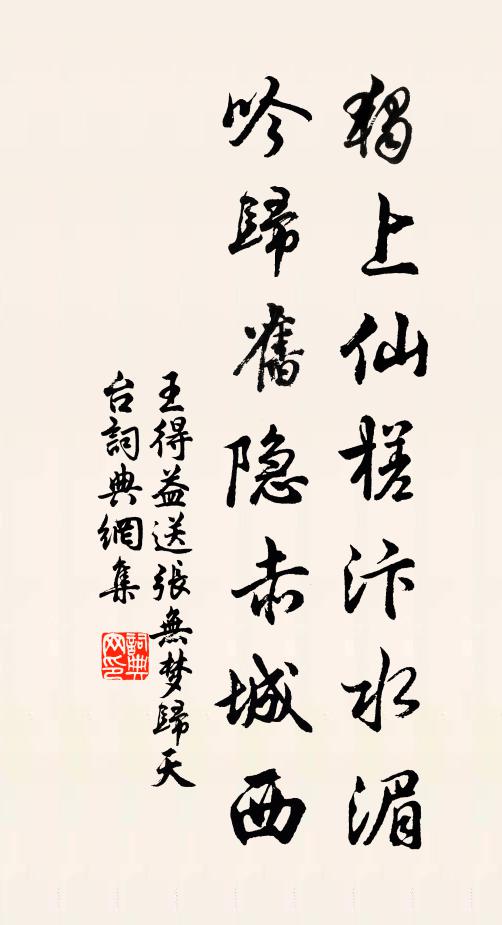 獨上仙槎汴水湄
吟歸舊隐赤城西
王得益送張無梦歸天
台詞典網集
詞典
网印